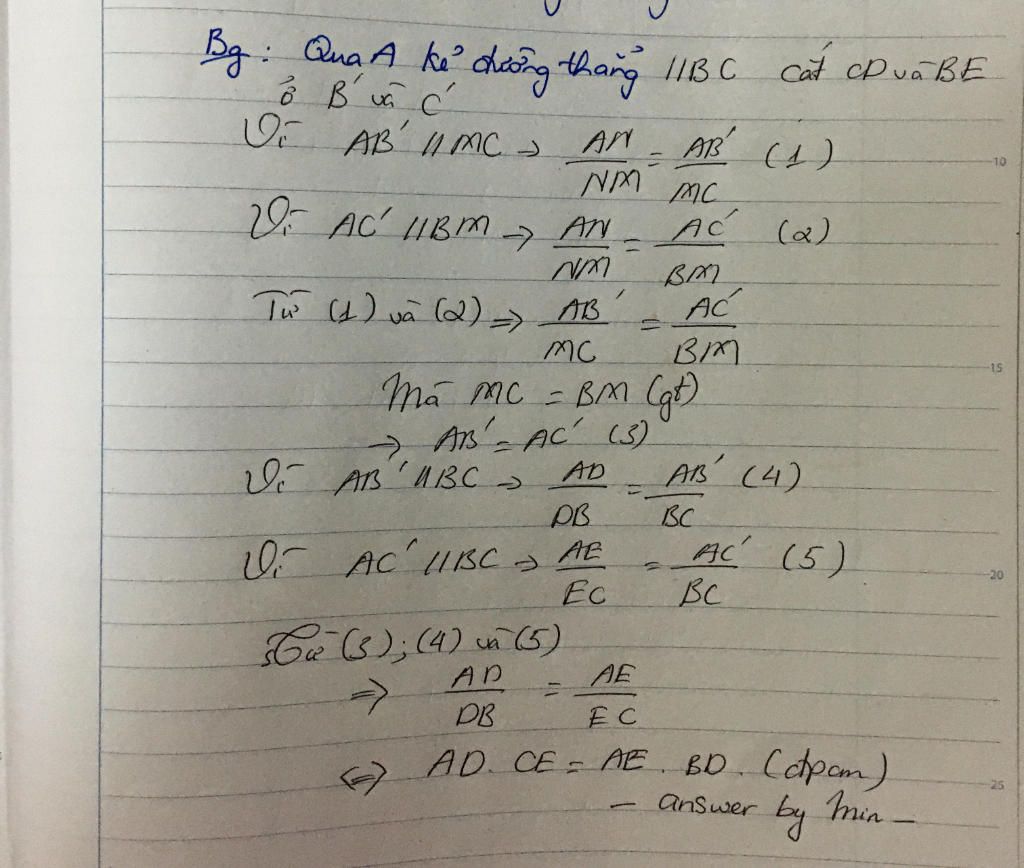 Bg: Qua A kẻ đường thẳng // BC cắt CD và BE
ở B' và C'
Vì AB' // MC → AN/NM = AB'/MC (1)
Vì AC' // BM → AN/NM = AC'/BM (2)
Từ (1) và (2) ⇒ AB'/MC = AC'/BM
Mà MC = BM (gt)
→ AB' = AC' (3)
Vì AB' // BC → AD/DB = AB'/BC (4)
Vì AC' // BC → AE/EC = AC'/BC (5)
Từ (3); (4) và (5)
⇒ AD/DB = AE/EC
⇔ AD. CE = AE. BD. (đpcm)
- answer by Min -
10
15
20
25